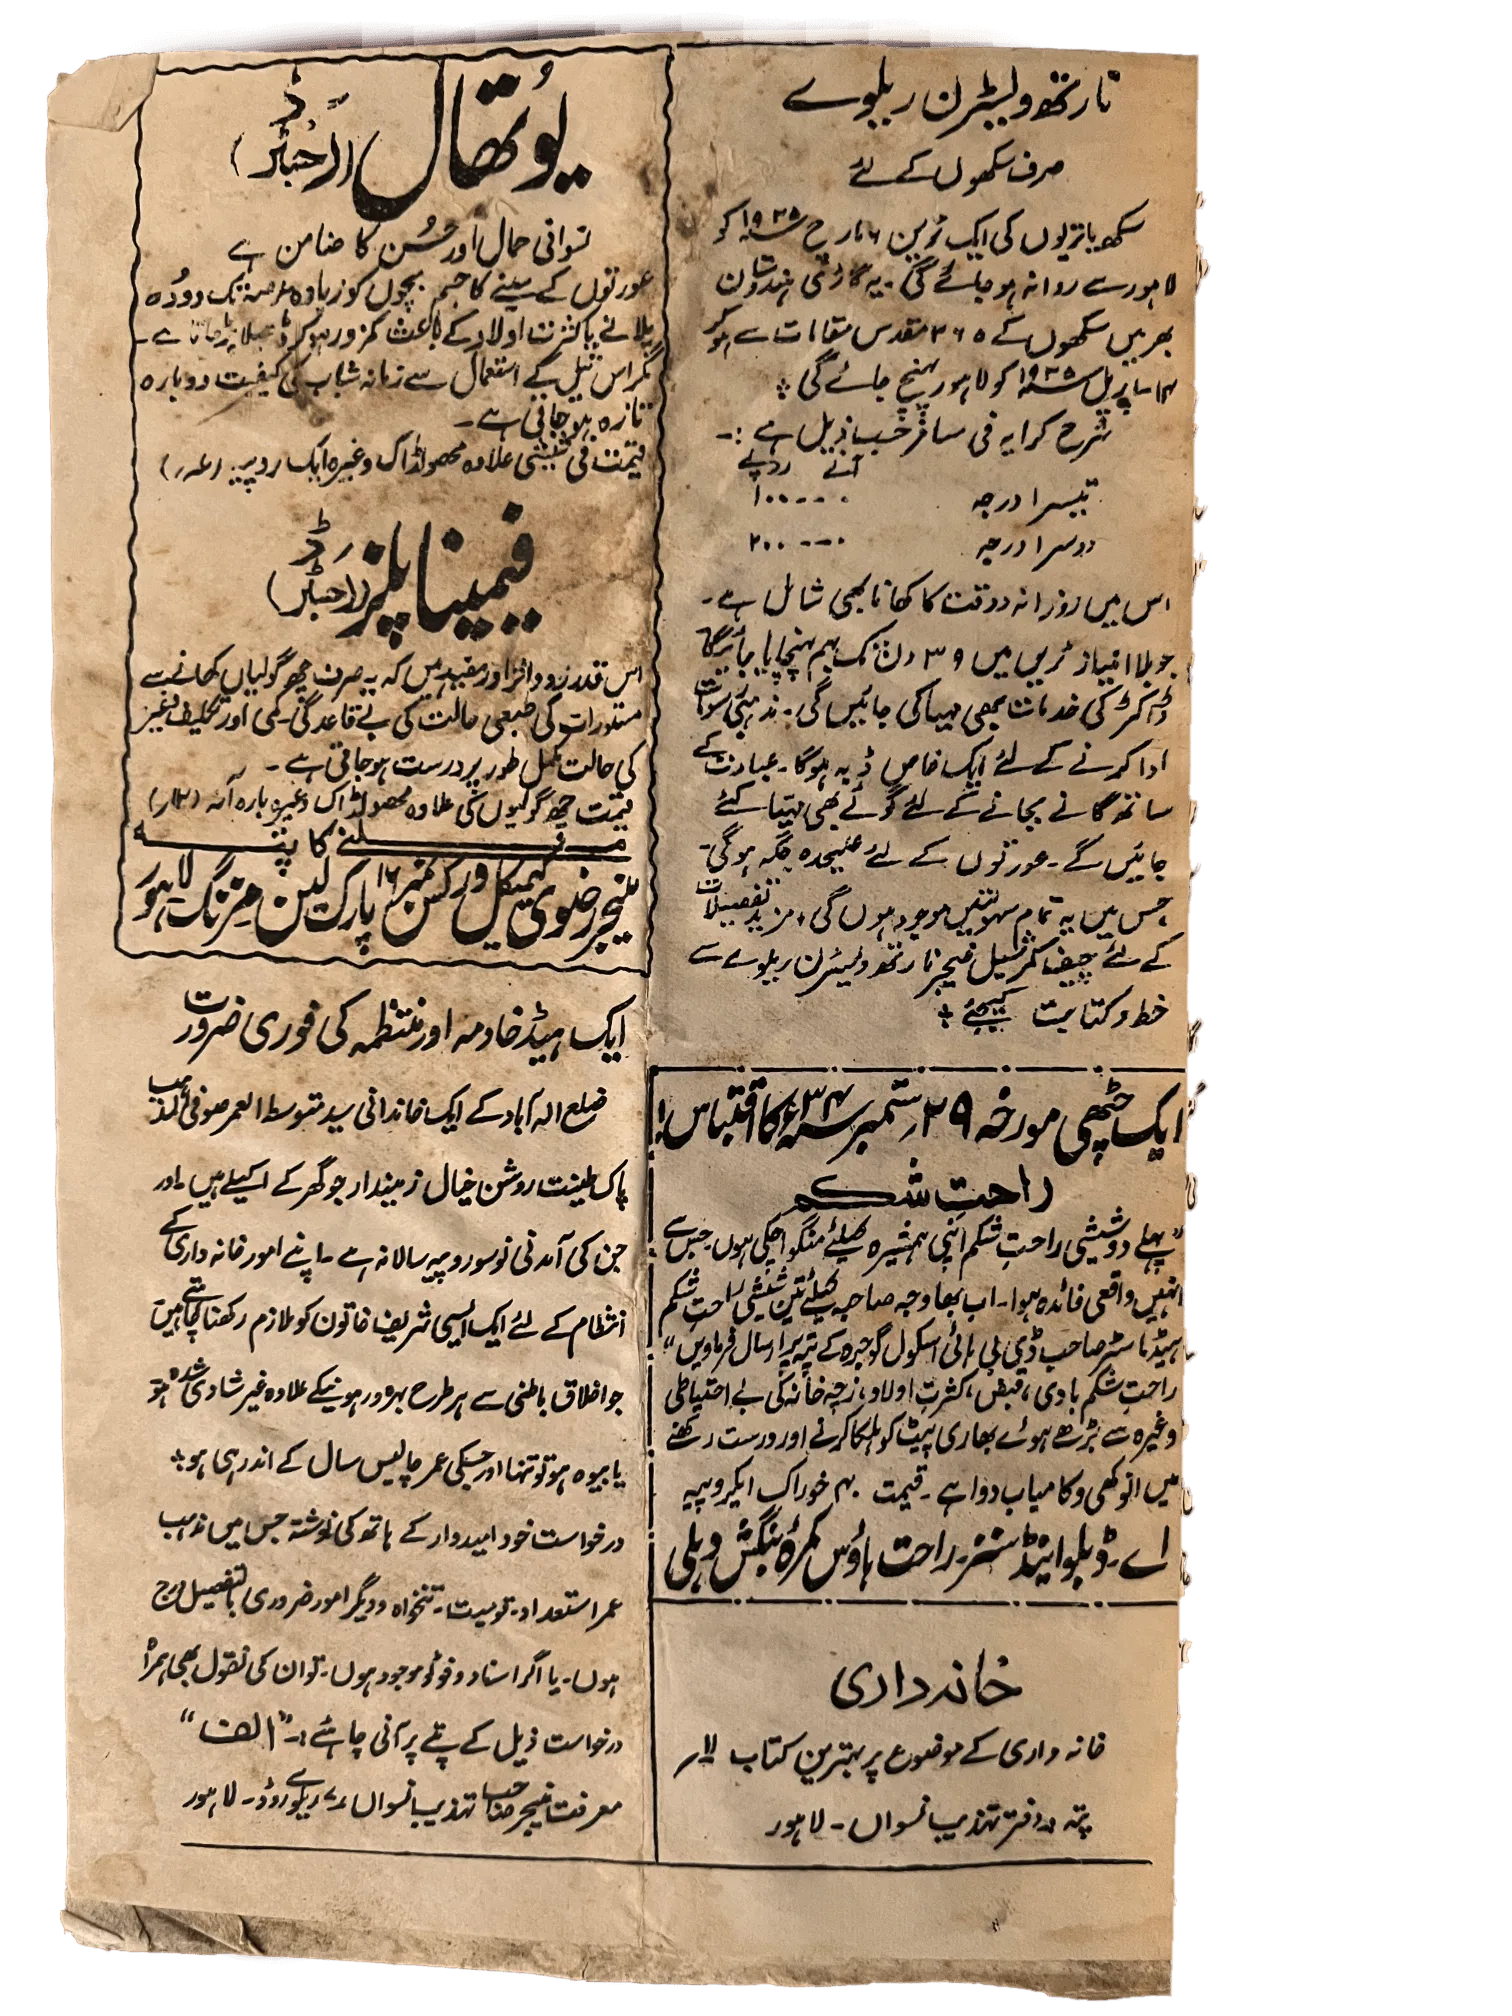 نارتھ ویسٹرن ریلوے
صرف سکھوں کے لئے
سکھ یاتریوں کی ایک ٹرین ۶ مارچ ۱۹۳۵ء کو
لاہور سے روانہ ہو جائے گی۔ یہ گاڑی ہندوستان
بھر میں سکھوں کے ۲۶۵ مقدس مقامات سے ہو کر
اپریل ۱۹۳۵ء کو لاہور پہنچ جائے گی ؞
شرح کرایہ فی مسافر حسب ذیل ہے :۔
آنے روپے
تیسرا درجہ ۰---۱۰۰
دوسرا درجہ ۰---۲۰۰
اس میں روزانہ دو وقت کا کھانا بھی شامل ہے۔
جو بلا امتیاز ٹرین میں ۳۹ دن تک بہم پہنچایا جائیگا
ڈاکٹر کی خدمات بھی مہیا کی جائیں گی۔ مذہبی رسومات
ادا کرنے کے لئے ایک خاص ڈبہ ہوگا۔ عبادت کے
ساتھ گانے بجانے کے لئے گوئے بھی مہیا کئے
جائیں گے۔ عورتوں کے لئے علیحدہ جگہ ہوگی۔
جس میں یہ تمام سہولتیں موجود ہوں گی ؞ مزید تفصیلات
کے لئے چیف کمرشیل منیجر نارتھ ویسٹرن ریلوے سے
خط و کتابت کیجئے ؞
ایک چٹھی مورخہ ۲۹ ستمبر ۳۴ء کا اقتباس!
راحتِ شکم
”پہلے دو شیشی راحتِ شکم اپنی ہمشیرہ کیلئے منگوا چکی ہوں۔ جس سے
انہیں واقعی فائدہ ہوا۔ اب بھاوجہ صاحبہ کیلئے تین شیشی راحتِ شکم
ہیڈ ماسٹر صاحب ڈی بی ہائی اسکول گوجرہ کے پتہ پر ارسال فرماویں“
راحتِ شکم بادی، قبض، کثرتِ اولاد، زچہ خانہ کی بے احتیاطی
وغیرہ سے بڑھے ہوئے بھاری پیٹ کو ہلکا کرنے اور درست رکھنے
میں انوکھی و کامیاب دوا ہے۔ قیمت خوراک ایکروپیہ
اے۔ ڈبلو اینڈ سنز۔ راحت ہاؤس کمرۂ بنگش دہلی
خانہ داری
خانہ داری کے موضوع پر بہترین کتاب
پتہ دفتر تہذیب نسواں۔ لاہور
یُوتھال (رجسٹرڈ)
نسوانی جمال اور حُسن کا ضامن ہے
عورتوں کے سینے کا حجم بچوں کو زیادہ عرصہ تک دودھ
پلانے یا کثرت اولاد کے باعث کمزور ہو کر ڈھیلا پڑ جاتا ہے۔
مگر اس تیل کے استعمال سے زمانہ شباب کی کیفیت دوبارہ
تازہ ہو جاتی ہے۔
قیمت فی شیشی علاوہ محصولڈاک وغیرہ ایک روپیہ (عہ)
فیمینا پلز (رجسٹرڈ)
اس قدر زود اثر اور مفید ہیں کہ یہ صرف چھ گولیاں کھانے سے
مستورات کی طبعی حالت کی بے قاعدگی۔ کمی اور تکلیف وغیرہ
کی حالت مکمل طور پر درست ہو جاتی ہے۔
قیمت چھ گولیوں کی علاوہ محصولڈاک وغیرہ بارہ آنہ (۱۲/)
ملنے کا پتہ
منیجر رضوی کیمیکل ورکس نمبر ۱۶ پارک لین مزنگ لاہور
ایک ہیڈ خادمہ اور منتظمہ کی فوری ضرورت
ضلع الہ آباد کے ایک خاندانی سید متوسط العمر صوفی المذہب
پاک طینت روشن خیال زمیندار جو گھر کے اکیلے ہیں۔ اور
جن کی آمدنی نو سو روپیہ سالانہ ہے۔ اپنے امور خانہ داری کے
انتظام کے لئے ایک ایسی شریف خاتون کو ملازم رکھنا چاہتے ہیں
جو اخلاق باطنی سے ہر طرح بہرہ ور ہونیکے علاوہ غیر شادی شدہ ہو
یا بیوہ ہو تو تنہا اور جسکی عمر چالیس سال کے اندر ہی ہو ؞
درخواست خود امیدوار کے ہاتھ کی نوشتہ جس میں مذہب
عمر استعداد۔ قومیت۔ تنخواہ و دیگر امور ضروری بالتفصیل درج
ہوں۔ یا اگر اسناد و فوٹو موجود ہوں۔ تو ان کی نقول بھی ہمراہ
درخواست ذیل کے پتے پر آنی چاہئے :۔ ”الف“
معرفت منیجر صاحب تہذیب نسواں ریلوے روڈ۔ لاہور